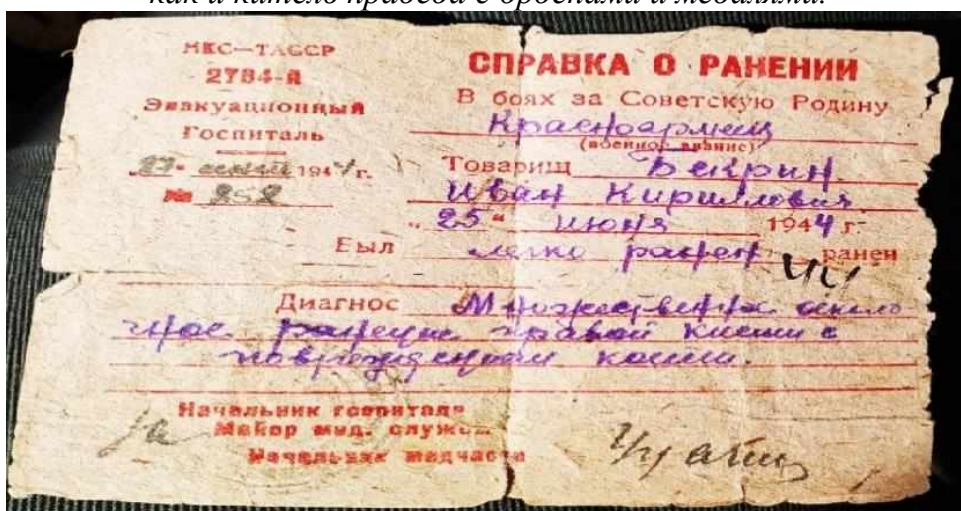 как и кителю прадеда с орденами и медалями.
НКС—ТАССР
2784-й
Эвакуационный
Госпиталь
"27" 1944г.
№ 252
СПРАВКА О РАНЕНИИ
В боях за Советскую Родину
Красноармеец
(военное звание)
Товарищ Бекрин
Иван Кириллович
„25" июня 1944 г.
Был легко ранен ранен
Диагноз Множественное осколо
чное ранение правой кисти с
повреждением кости.
Начальник госпиталя
Майор мед. служ
Начальник медчасти